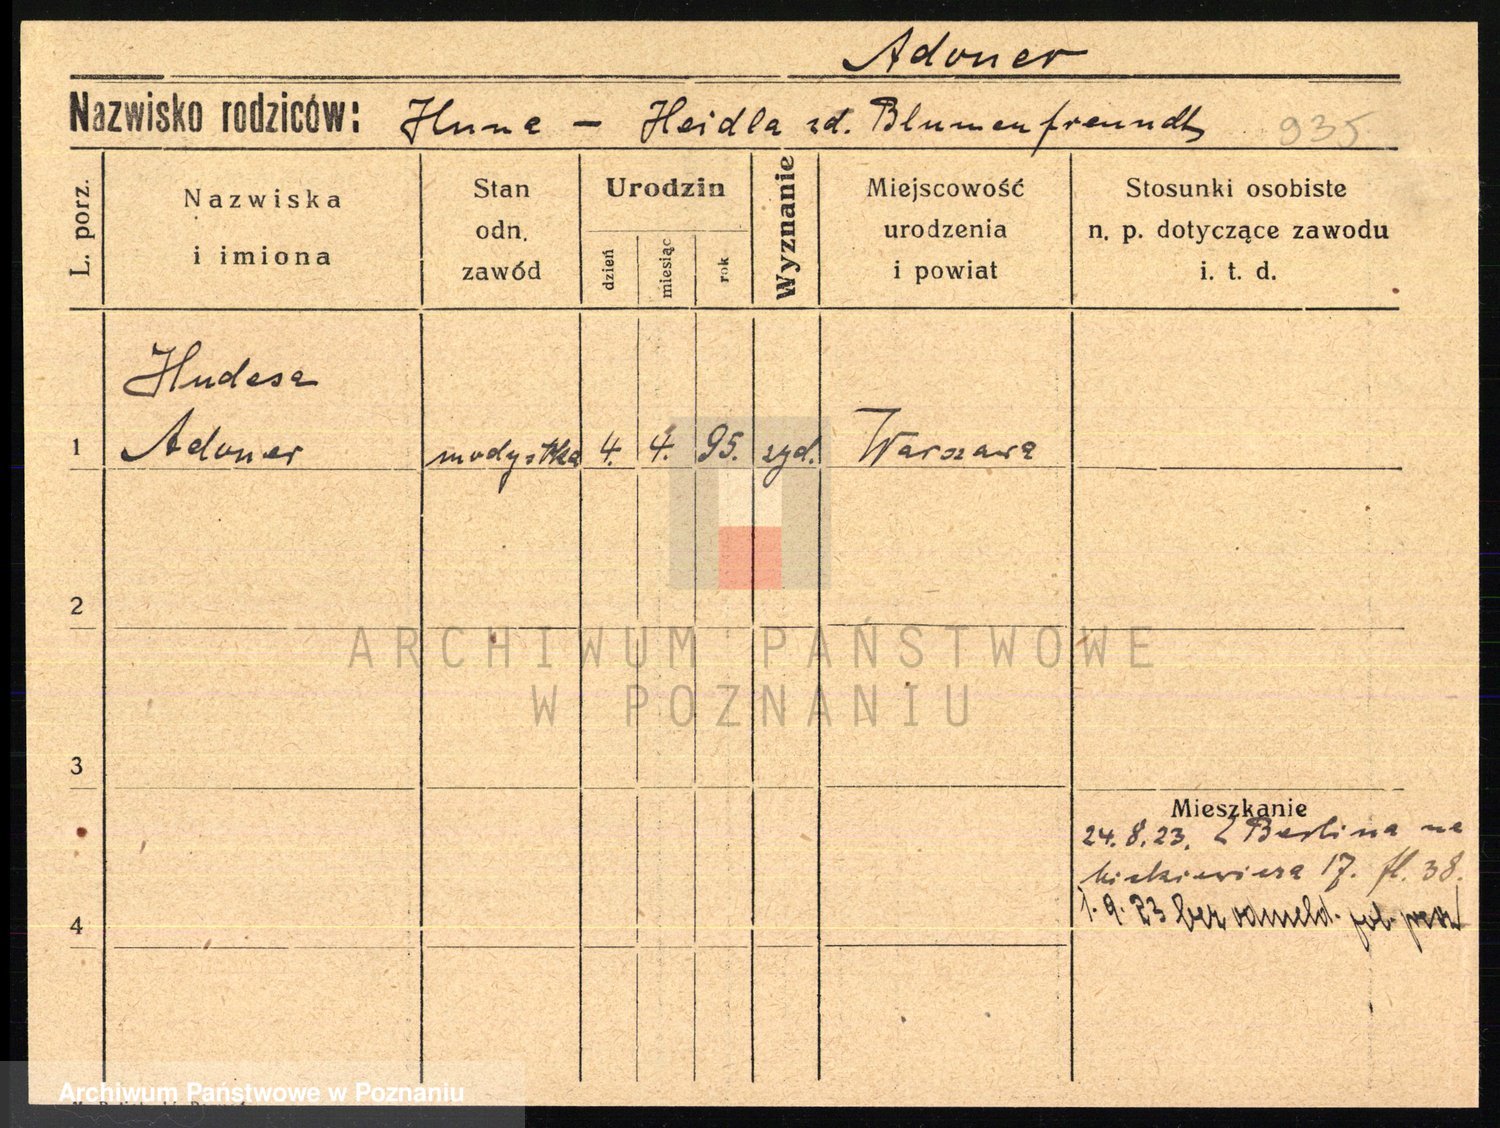 Adoner
Nazwisko rodziców: Huna - Heidla zd. Blumenfreundt 935
L. porz.
Nazwiska
i imiona
Stan
odn.
zawód
Urodzin
dzień
miesiąc
rok
Wyznanie
Miejscowość
urodzenia
i powiat
Stosunki osobiste
n. p. dotyczące zawodu
i. t. d.
Hudesa
1 Adoner modystka 4. 4. 95. żyd. Warszawa
2
ARCHIWUM PAŃSTWOWE
W POZNANIU
3
Mieszkanie
24.8.23. z Berlina na
17. fl. 38.
4 1.9.23 bez odmeld.
Archiwum Państwowe w Poznaniu